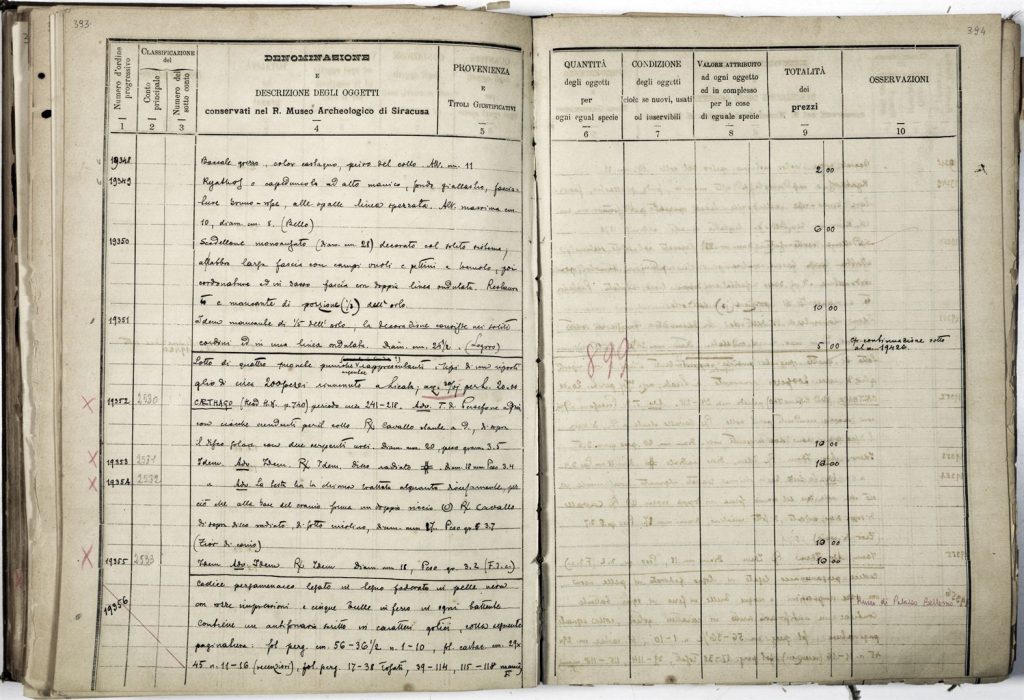 393
Numero d'ordine progressivo
CLASSIFICAZIONE del
Conto principale
Numero del sotto conto
DENOMINAZIONE
E
DESCRIZIONE DEGLI OGGETTI
conservati nel R. Museo Archeologico di Siracusa
PROVENIENZA
E
TITOLI GIUSTIFICATIVI
1 2 3 4 5
19348 Boccale grezzo, color castagno, privo del collo. Alt. cm. 11
19349 Kyathos o capeduncola ad alto manico, fondo giallastro, fascia-
ture bruno-rosse, alle spalle linea spezzata. Alt. massima cm.
10, diam. cm. 8. (Bello)
19350 Scodellone monoansato (Diam. cm. 28) decorato col solito sistema,
larga fascia con campi vuoti e pettini e tremolo, poi
cordonature ed in basso fascia con doppia linea ondulata. Restaura-
to e mancante di porzione (1/3) dell'orlo.
19351 Idem mancante di 1/5 dell'orlo, la decorazione consiste nei soliti
cordoni ed in una linea ondulata. Diam. cm. 25 1/2. (Logoro)
Lotto di quattro monete puniche rappresentanti i tipi di un riposti-
glio di circa 200 pezzi rinvenuto a Licata; per L. 20.00
19352 2530 CARTHAGO (Head H.N. p. 740) periodo 241-218. Adv. T. di Persefone a sin.
con cavallo stante a D., di sopra
il disco solare con due serpenti urei. Diam. mm 20, peso grammi 3.5
19353 2531 Idem. Adv. Idem. Rx Idem. disco radiato. Diam. 18 mm Peso 3.4
19354 2532 " Adv. La testa ha la chioma trattata alquanto diversamente, per
ciò che alla base del cranio forma un doppio riccio Rx Cavallo
di sopra disco radiato, di sotto Diam. mm Peso gr. 3.7
(Fior di conio)
19355 2533 Idem Adv. Idem Rx Idem Diam mm 18, Peso gr. 3.2 (F.d.c)
19356 Codice pergamenaceo legato in legno foderato in pelle nera
con rozze impressioni e cinque bulle in ferro in ogni battente
Contiene un antifonario scritto in caratteri gotici, colla seguente
paginatura: fol. perg. cm. 56-36 1/2 n. 1-10, fol. cartac. cm. 29x
45 n. 11-16 (recenziori), fol. perg. 17-38 39-114, 115-118
394
QUANTITÀ
degli oggetti
per
ogni egual specie
CONDIZIONE
degli oggetti
cioè: se nuovi, usati
od inservibili
VALORE ATTRIBUITO
ad ogni oggetto
ed in complesso
per le cose
di eguale specie
TOTALITÀ
dei
prezzi
OSSERVAZIONI
6 7 8 9 10
2 00
6 00
10 00
5 00
Cfr. continuazione sotto
al n. 19426.
899
10 00
10 00
10 00
10 00
Museo di Palazzo Bellomo